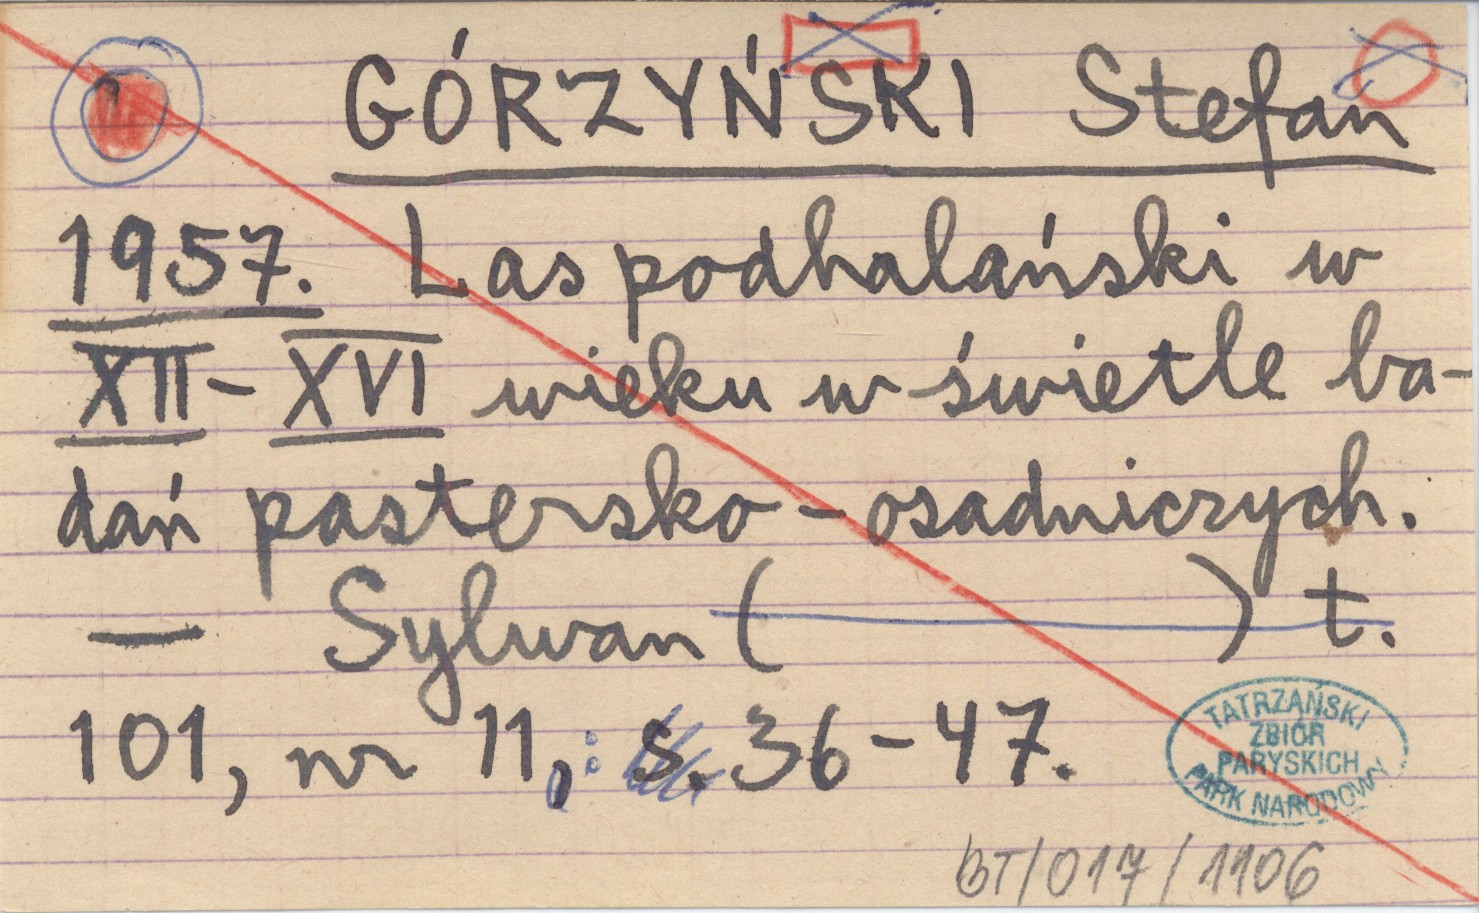 GÓRZYŃSKI Stefan
1957. Las podhalański w
XII - XVI wieku w świetle ba-
dań pastersko-osadniczych.
— Sylwan ( ) t.
101, nr 11, : s. 36-47.
TATRZAŃSKI
ZBIÓR
PARYSKICH
PARK NARODOWY
BT/017/1106